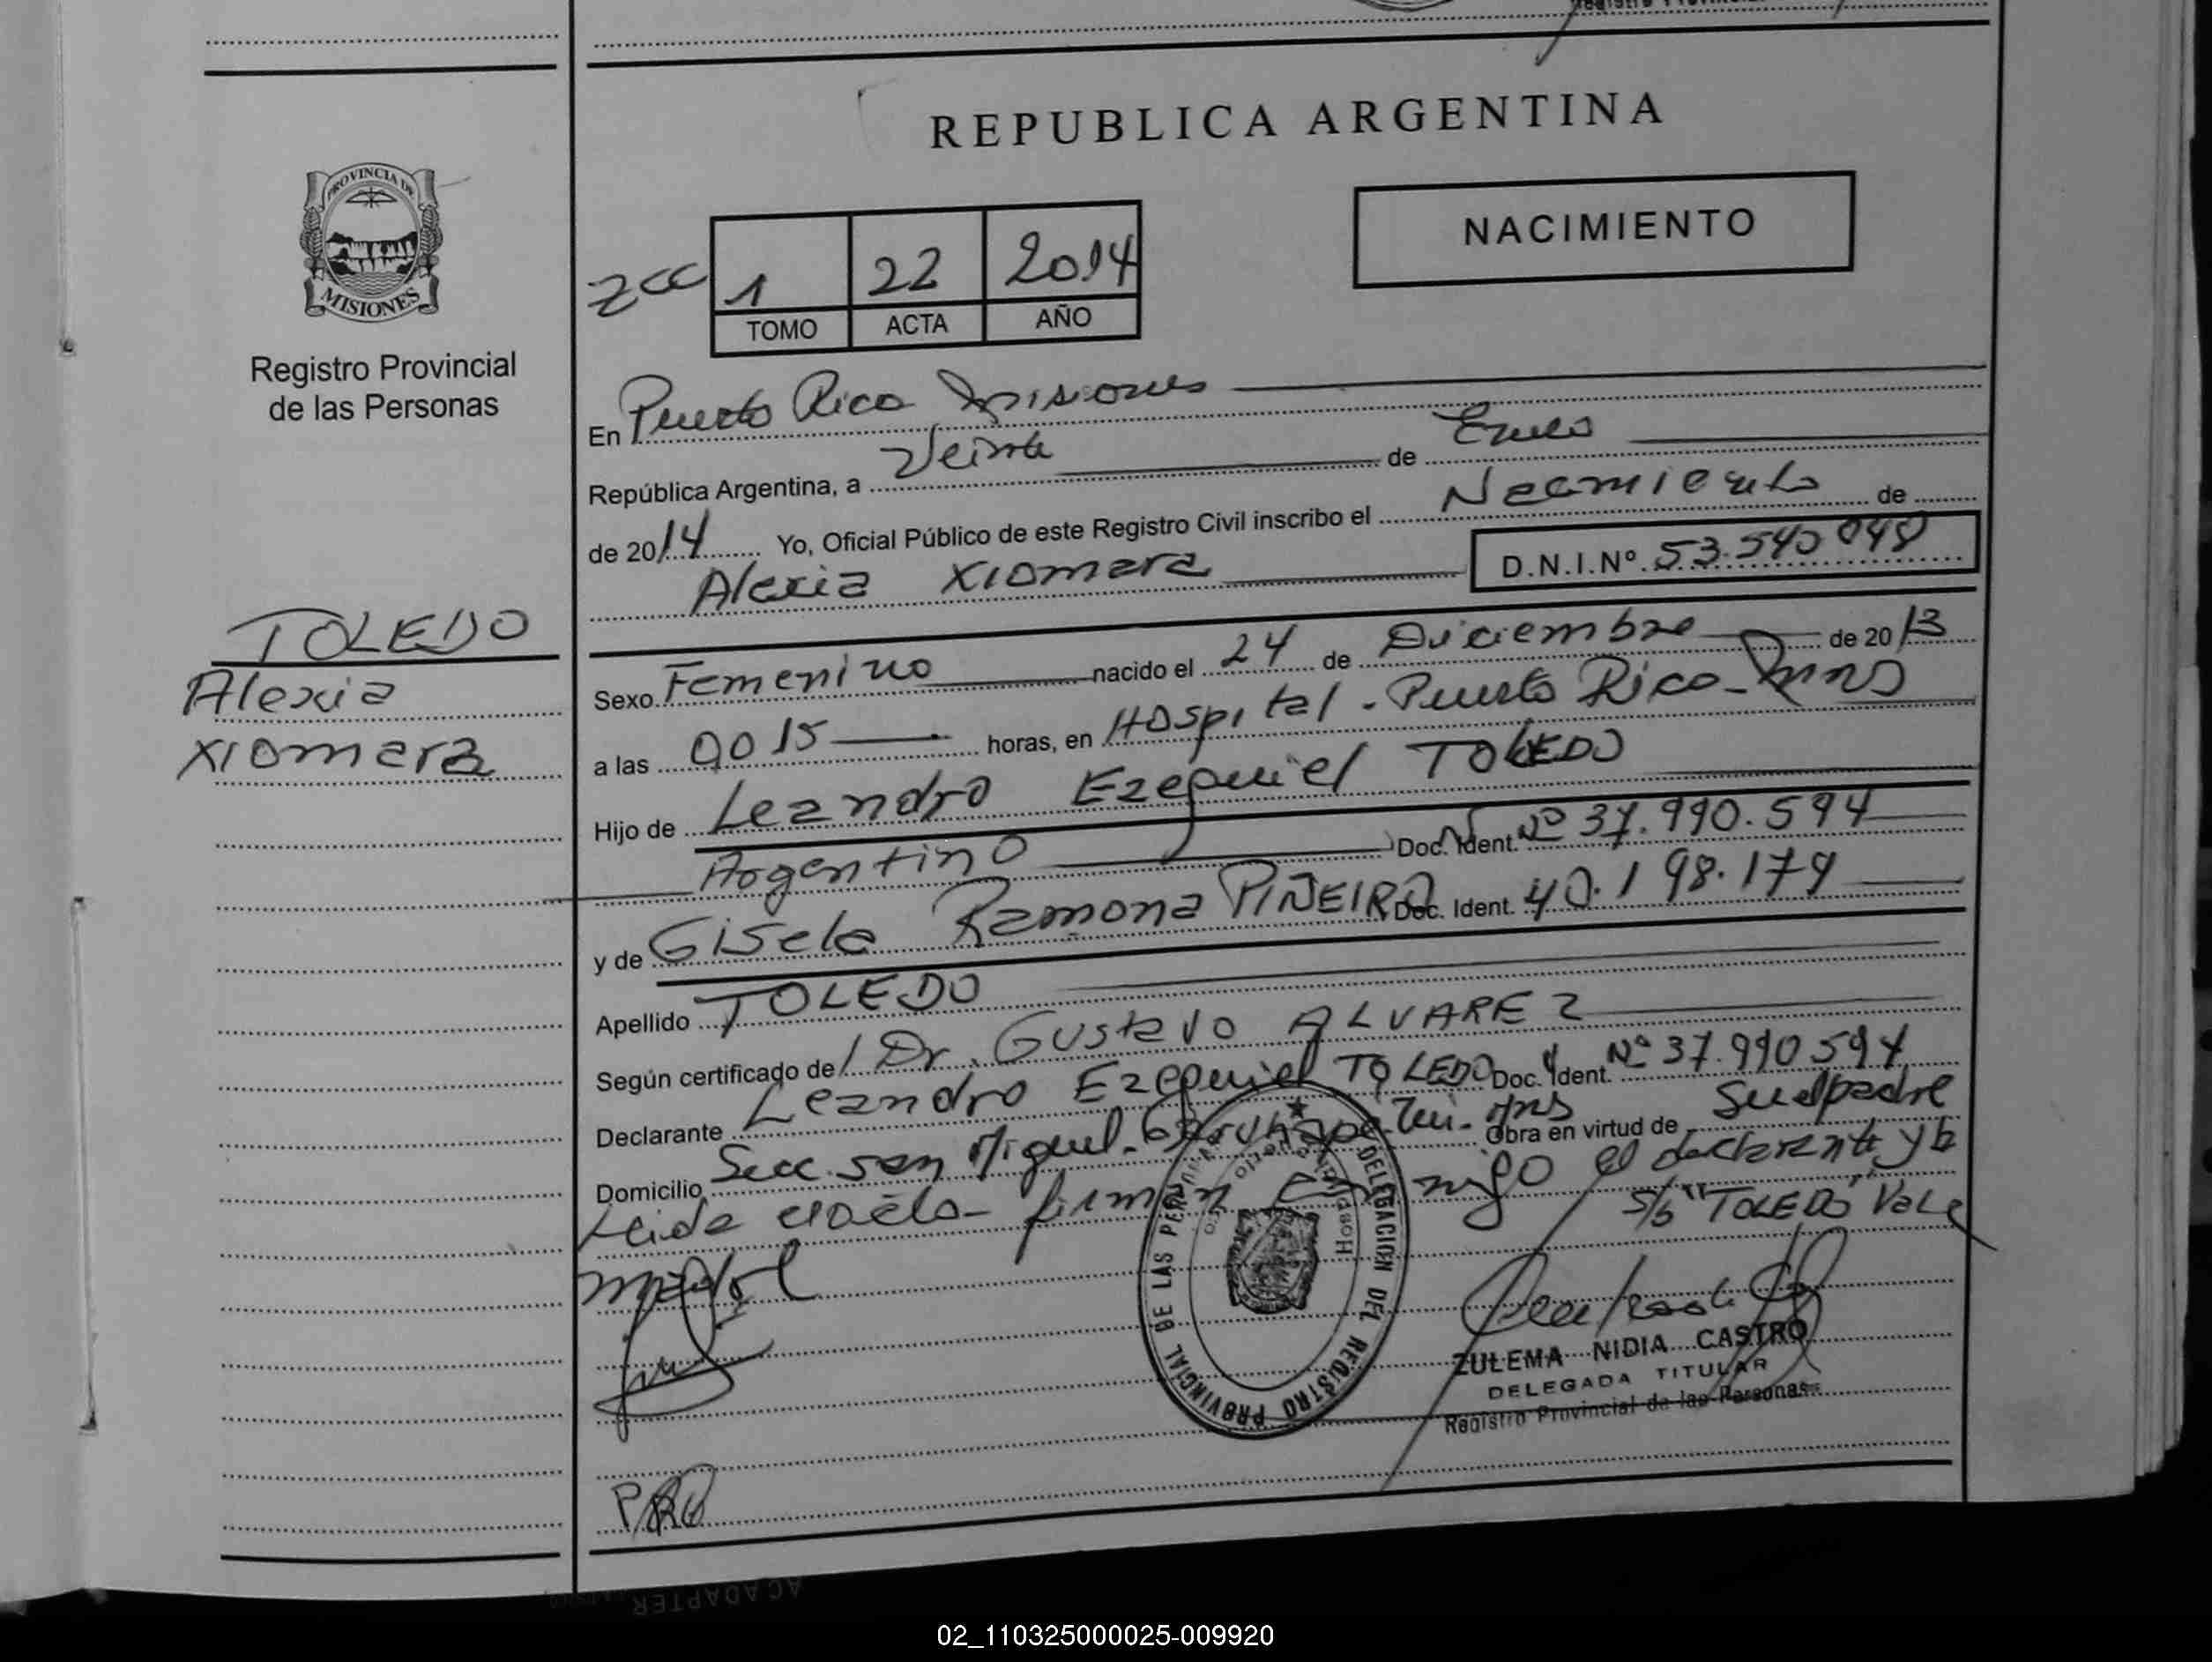 REPUBLICA ARGENTINA
PROVINCIA DE
MISIONES
Registro Provincial
de las Personas
NACIMIENTO
zcc 1 22 2014
TOMO ACTA AÑO
En Puerto Rico Misiones
República Argentina, a Veinte de Enero
de 2014 Yo, Oficial Público de este Registro Civil inscribo el Nacimiento de
Alexia Xiomara D.N.I.Nº. 53.540 048
TOLEDO
Alexia
Xiomara
Sexo Femenino nacido el 24 de Diciembre de 2013
a las 0015 horas, en Hospital - Puerto Rico - Mns
Hijo de Leandro Ezequiel TOLEDO
Argentino Doc. Ident. Nº 37.990.594
y de Gisela Ramona PIÑEIRO Doc. Ident. 40.198.179
Apellido TOLEDO
Según certificado de Dr. Gustavo ALVAREZ
Declarante Leandro Ezequiel TOLEDO Doc. Ident. Nº 37.990594
Domicilio Secc. San Miguel - Mns Obra en virtud de Ser el padre
Leida el acta - firman conmigo el declarante y la
S/b "TOLEDO" Vale
DELEGACION DEL REGISTRO PROVINCIAL DE LAS PERSONAS
ZULEMA NIDIA CASTRO
DELEGADA TITULAR
Registro Provincial de las Personas
AC ADAPTER
02_110325000025-009920